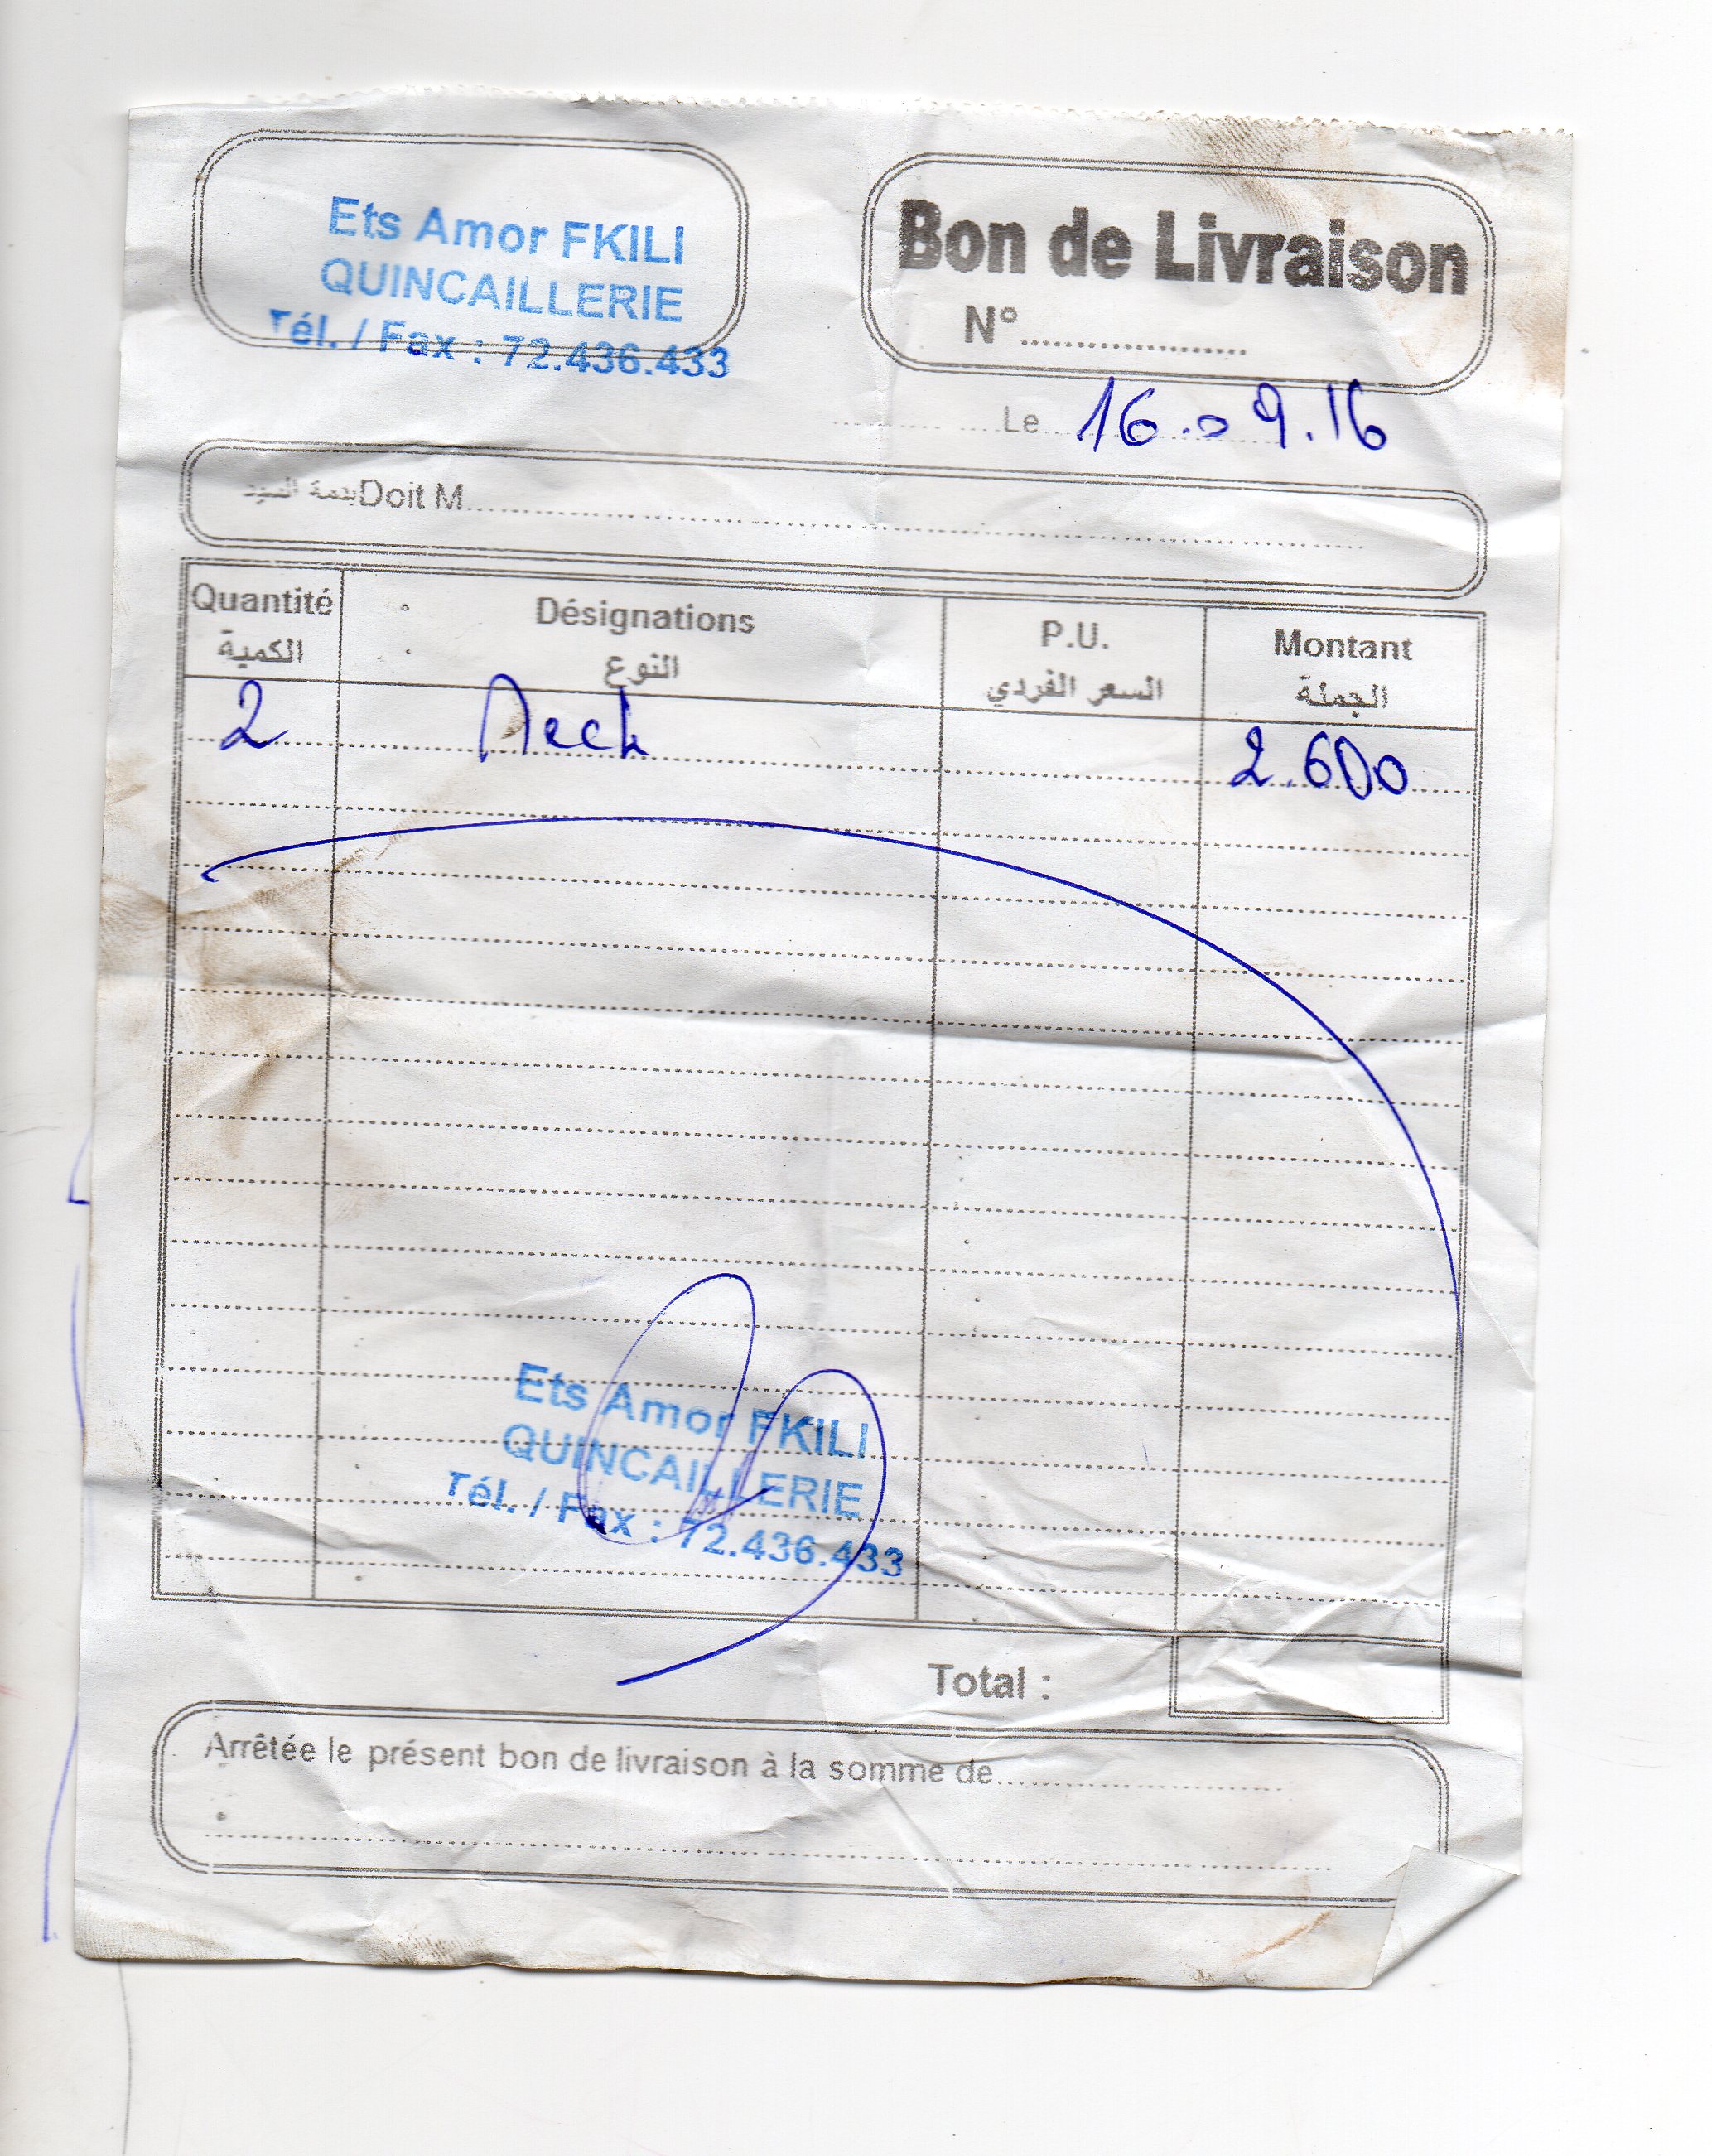 Ets Amor FKILI
QUINCAILLERIE
Tél. / Fax : 72.436.433
Bon de Livraison
N°....................
Le 16.09.16
بذمة السيد Doit M
Quantité Désignations P.U. Montant
الكمية النوع السعر الفردي الجملة
2 Mech 2.600
Ets Amor FKILI
QUINCAILLERIE
Tél. / Fax : 72.436.433
Total :
Arrêtée le présent bon de livraison à la somme de